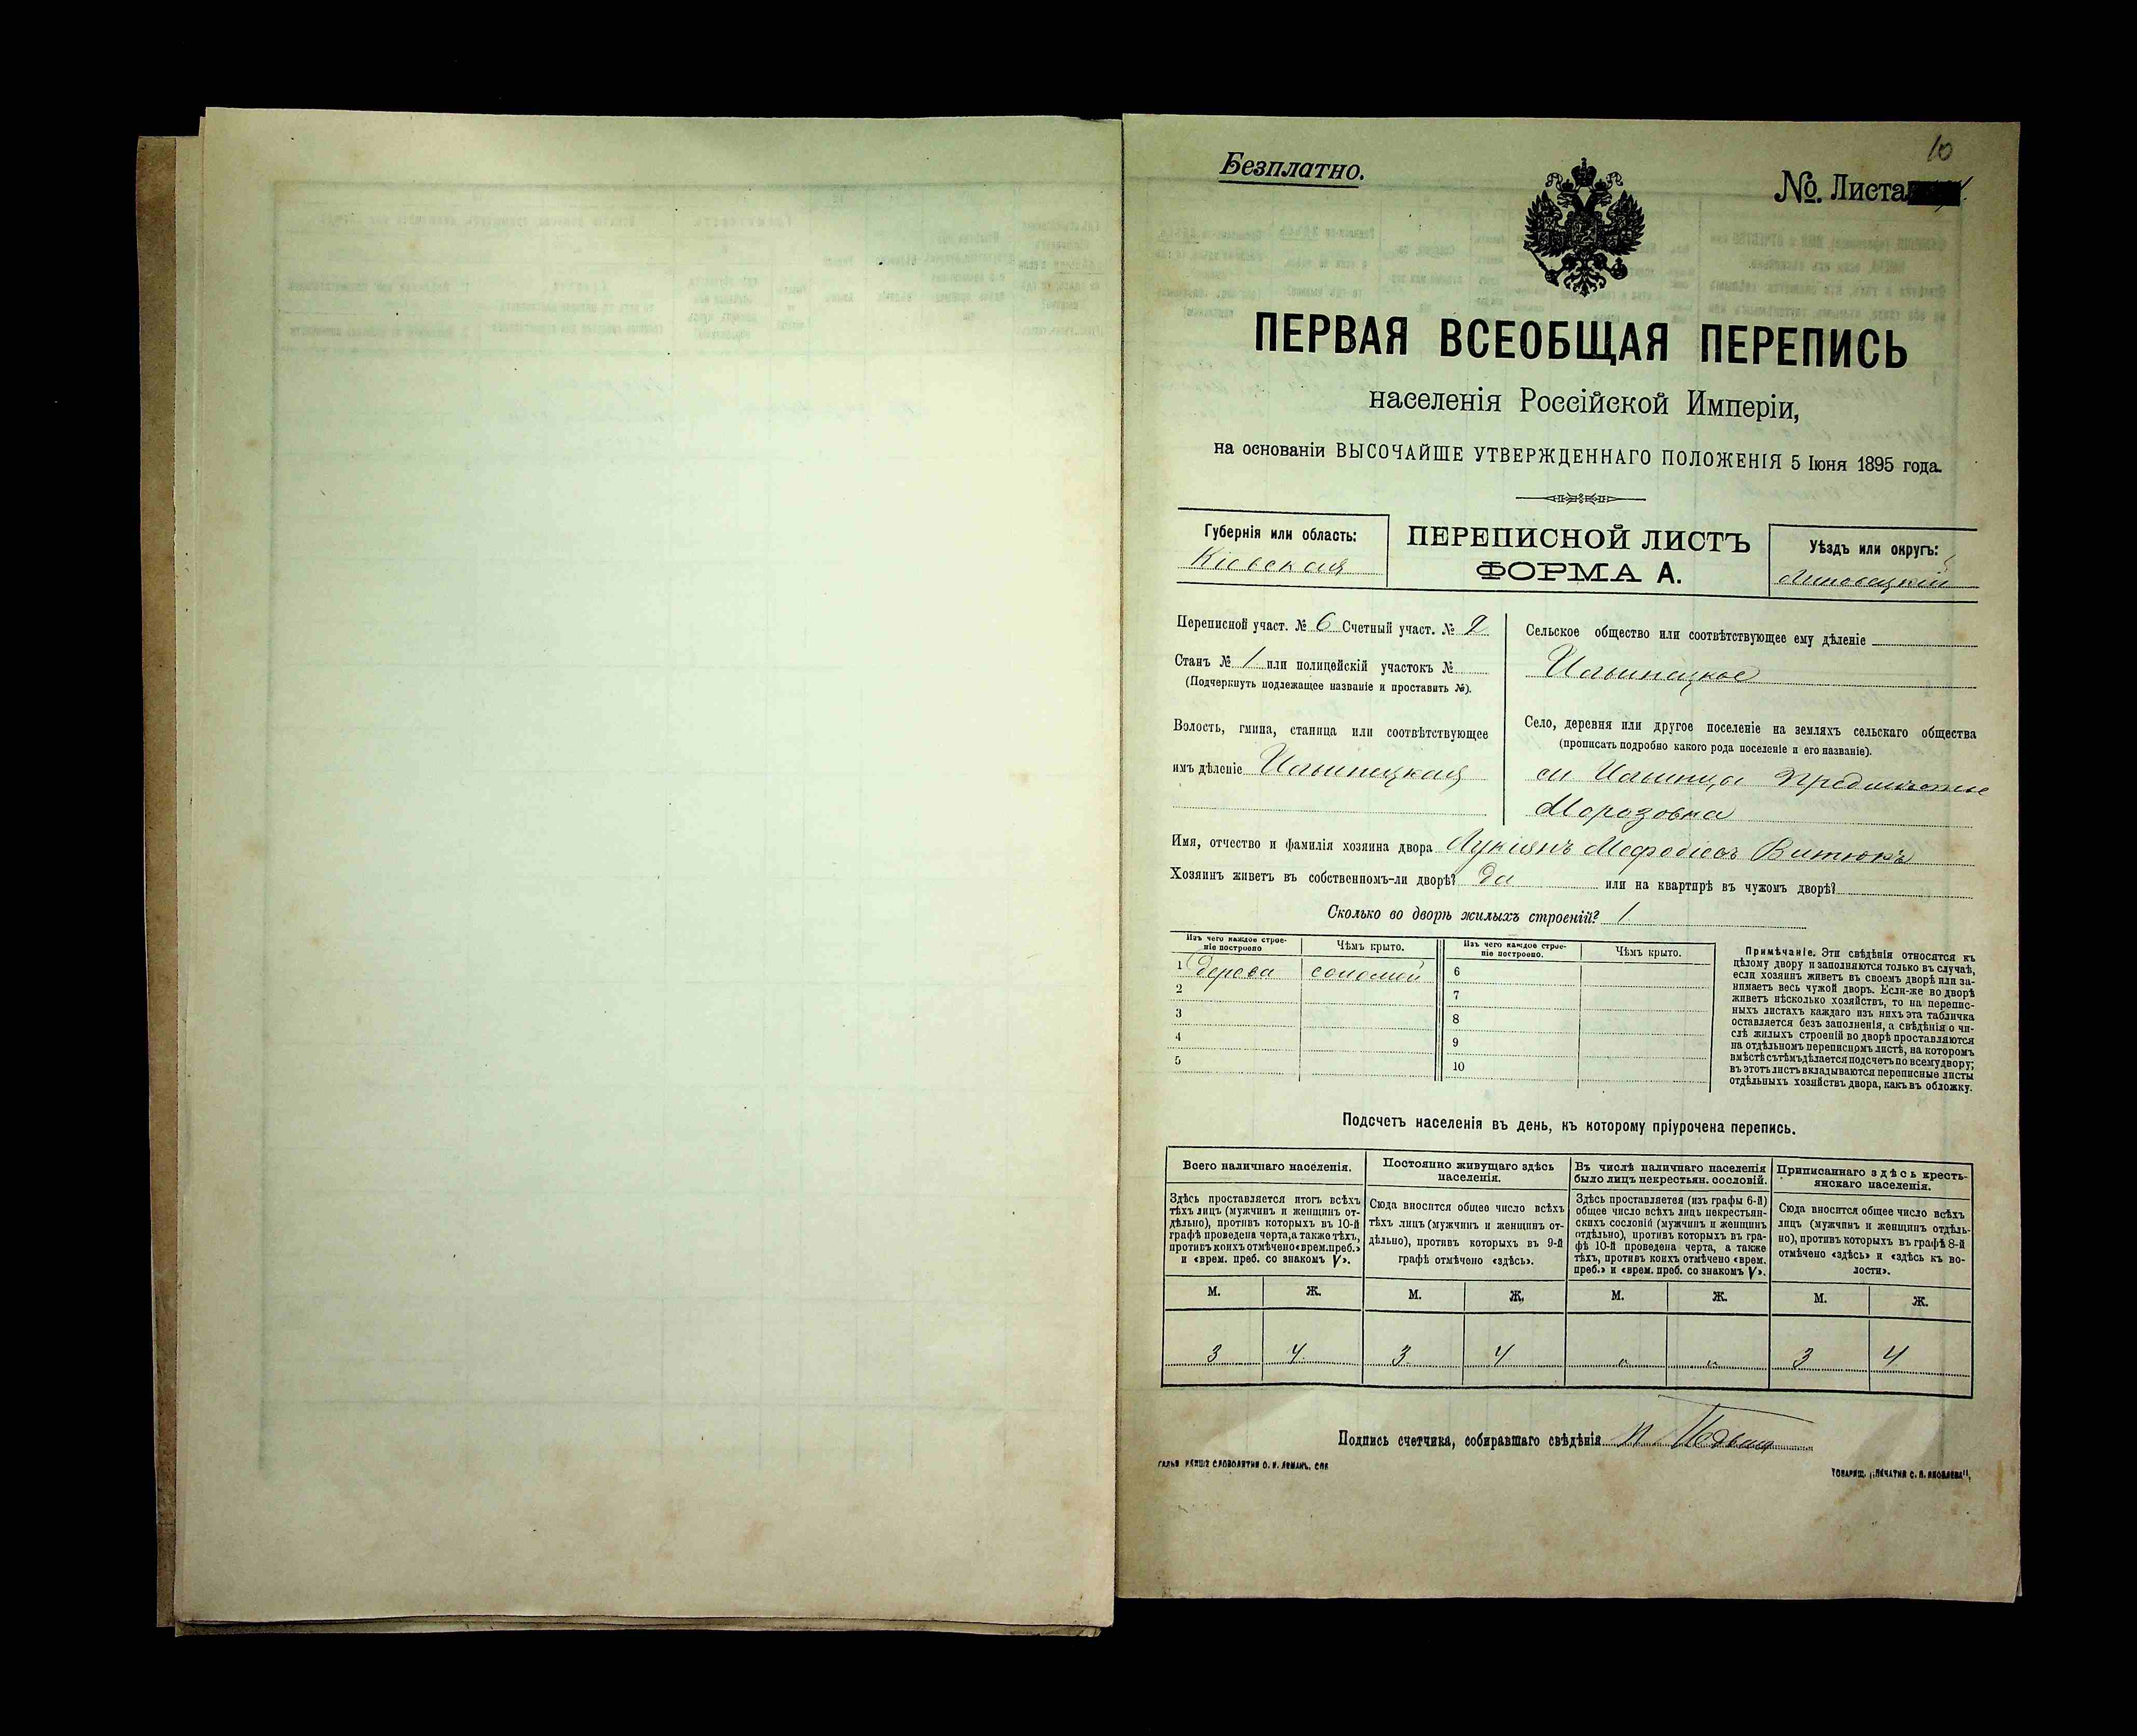 10
Безплатно.
№. Листа
ПЕРВАЯ ВСЕОБЩАЯ ПЕРЕПИСЬ
населенія Россійской Имперіи,
на основаніи ВЫСОЧАЙШЕ УТВЕРЖДЕННАГО ПОЛОЖЕНІЯ 5 Іюня 1895 года.
Губернія или область:
Кіевская
ПЕРЕПИСНОЙ ЛИСТЪ
ФОРМА А.
Уѣздъ или округъ:
Липовецкій
Переписной участ. № 6 Счетный участ. № 2
Станъ № 1 или полицейскій участокъ №
(Подчеркнуть подлежащее названіе и проставить №).
Волость, гмина, станица или соотвѣтствующее
имъ дѣленіе Ильинецкая
Сельское общество или соотвѣтствующее ему дѣленіе
Ильинецкое
Село, деревня или другое поселеніе на земляхъ сельскаго общества
(прописать подробно какого рода поселеніе и его названіе).
Ильинца Предмѣстье
Морозовка
Имя, отчество и фамилія хозяина двора Лукіянъ Мефодіевъ Витюкъ
Хозяинъ живетъ въ собственномъ-ли дворѣ? да или на квартирѣ въ чужомъ дворѣ?
Сколько во дворѣ жилыхъ строеній? 1
Изъ чего каждое строе-
ніе построено
Чѣмъ крыто.
Изъ чего каждое строе-
ніе построено.
Чѣмъ крыто.
1 дерева соломой 6
2 7
3 8
4 9
5 10
Примѣчаніе. Эти свѣдѣнія относятся къ
цѣлому двору и заполняются только въ случаѣ,
если хозяинъ живетъ въ своемъ дворѣ или за-
нимаетъ весь чужой дворъ. Если-же во дворѣ
живетъ нѣсколько хозяйствъ, то на перепис-
ныхъ листахъ каждаго изъ нихъ эта табличка
оставляется безъ заполненія, а свѣдѣнія о чи-
слѣ жилыхъ строеній во дворѣ проставляются
на отдѣльномъ переписномъ листѣ, на которомъ
вмѣстѣ съ тѣмъ дѣлается подсчетъ по всему двору;
въ этотъ листъ вкладываются переписные листы
отдѣльныхъ хозяйствъ двора, какъ въ обложку.
Подсчетъ населенія въ день, къ которому пріурочена перепись.
Всего наличнаго населенія.
Здѣсь проставляется итогъ всѣхъ
тѣхъ лицъ (мужчинъ и женщинъ от-
дѣльно), противъ которыхъ въ 10-й
графѣ проведена черта, а также тѣхъ,
противъ коихъ отмѣчено «врем. преб.»
и «врем. преб. со знакомъ V».
Постоянно живущаго здѣсь
населенія.
Сюда вносится общее число всѣхъ
тѣхъ лицъ (мужчинъ и женщинъ от-
дѣльно), противъ которыхъ въ 9-й
графѣ отмѣчено «здѣсь».
Въ числѣ наличнаго населенія
было лицъ некрестьян. сословій.
Здѣсь проставляется (изъ графы 6-й)
общее число всѣхъ лицъ некрестьян-
скихъ сословій (мужчинъ и женщинъ
отдѣльно), противъ которыхъ въ гра-
фѣ 10-й проведена черта, а также
тѣхъ, противъ коихъ отмѣчено «врем.
преб.» и «врем. преб. со знакомъ V».
Приписаннаго здѣсь кресть-
янскаго населенія.
Сюда вносится общее число всѣхъ
лицъ (мужчинъ и женщинъ отдѣль-
но), противъ которыхъ въ графѣ 8-й
отмѣчено «здѣсь» и «здѣсь къ во-
лости».
М. Ж. М. Ж. М. Ж. М. Ж.
3 4 3 4 „ „ 3 4
Подпись счетчика, собиравшаго свѣдѣнія
СЛОВОЛИТНЯ О. И. ЛЕМАНЪ. СПБ.
ТОВАРИЩ. „ПЕЧАТНЯ С. П. ЯКОВЛЕВА".